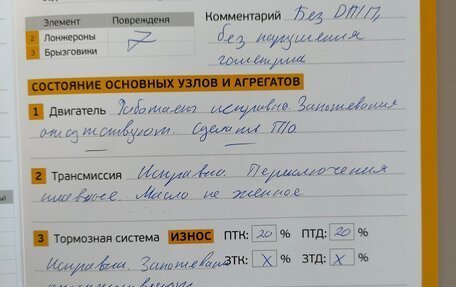 Элемент Повреждения Комментарий Без ДТП,
2 Лонжероны без нарушения
3 Брызговики геометрии
СОСТОЯНИЕ ОСНОВНЫХ УЗЛОВ И АГРЕГАТОВ
1 Двигатель Работает исправно. Запотевания
отсутствуют. Сделать ТО
2 Трансмиссия Исправна. Переключения
плавное. Масло не женное.
3 Тормозная система ИЗНОС ПТК: 20 % ПТД: 20 %
Исправна. Запотевания ЗТК: X % ЗТД: X %
отсутствуют